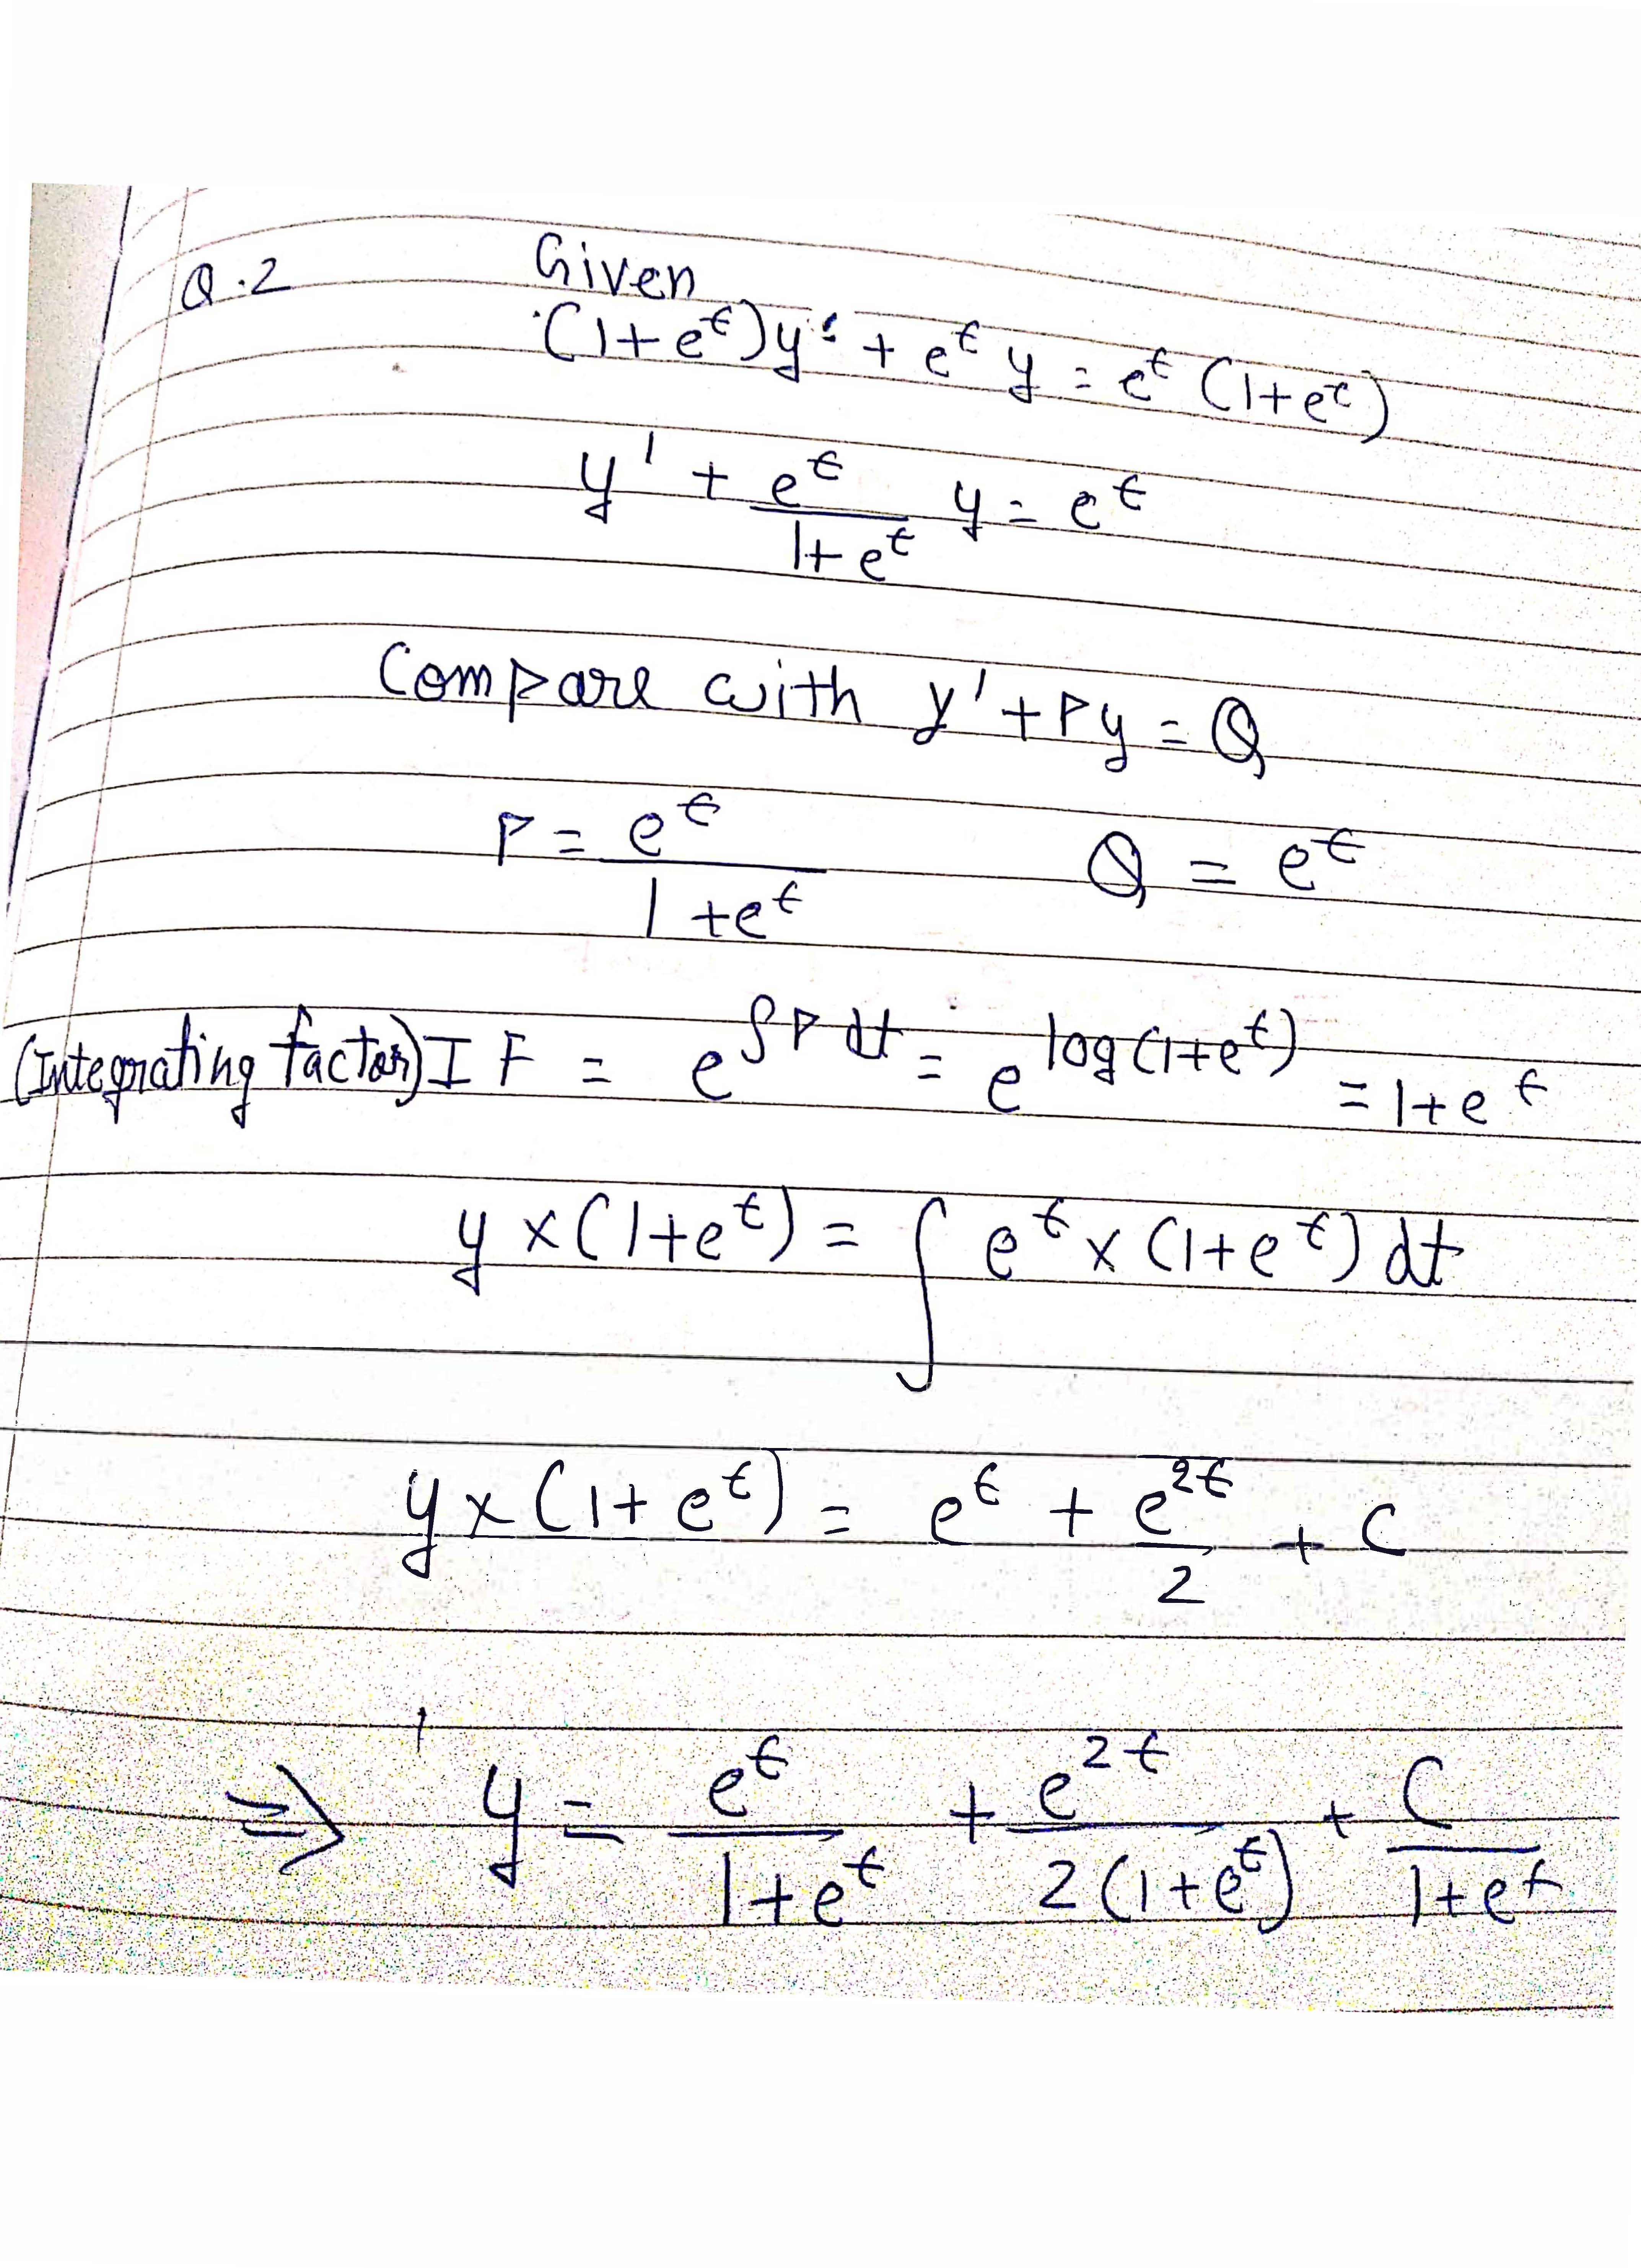 Q.2 Given
(1+e^t)y' + e^t y = e^t (1+e^t)
y' + e^t/(1+e^t) y = e^t
Compare with y'+Py = Q
P = e^t/(1+e^t) Q = e^t
(Integrating factor) I F = e^∫P dt = e^log(1+e^t) = 1+e^t
y×(1+e^t) = ∫ e^t×(1+e^t) dt
y×(1+e^t) = e^t + e^2t/2 + C
⇒ y = e^t/(1+e^t) + e^2t/(2(1+e^t)) + C/(1+e^t)